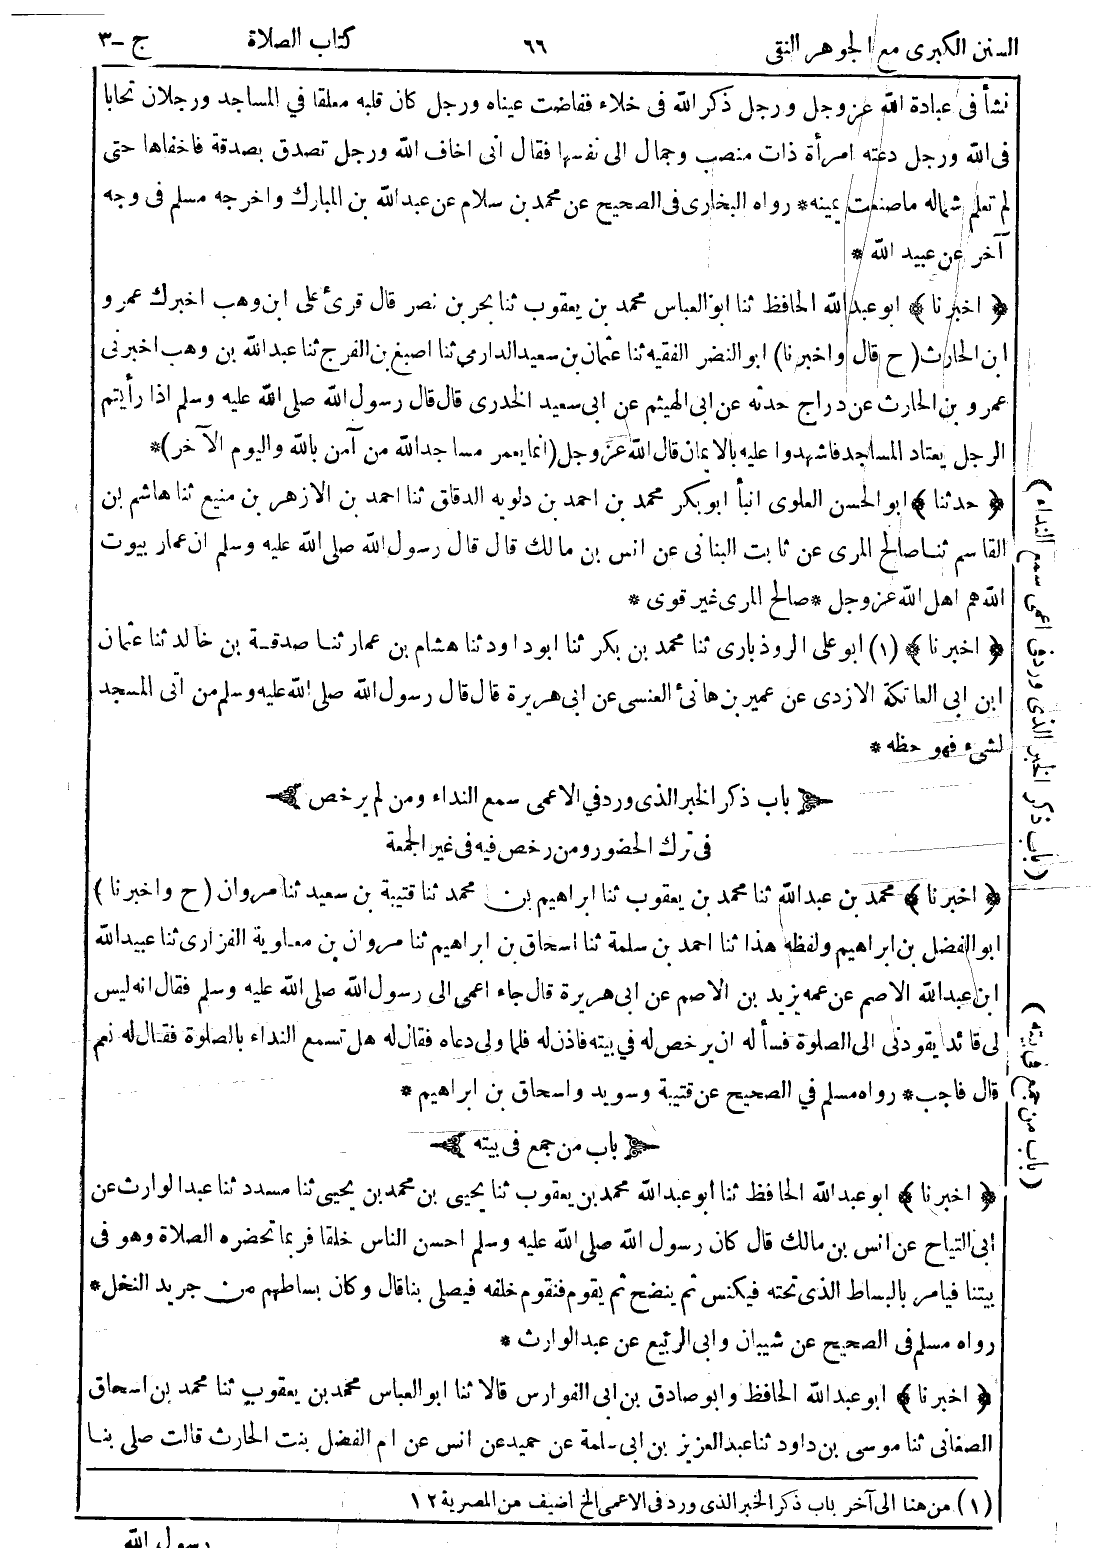 السنن الكبرى مع الجوهر النقى ٦٦ كتاب الصلاة ج -٣
نشأ فى عبادة الله عز وجل ورجل ذكر الله فى خلاء ففاضت عيناه ورجل كان قلبه معلقا في المساجد ورجلان تحابا
فى الله ورجل دعته امرأة ذات منصب وجمال الى نفسها فقال انى اخاف الله ورجل تصدق بصدقة فاخفاها حتى
لم تعلم شماله ما صنعت يمينه * رواه البخارى فى الصحيح عن محمد بن سلام عن عبدالله بن المبارك واخرجه مسلم فى وجه
آخر عن عبيد الله *
﴿ اخبرنا ﴾ ابو عبدالله الحافظ ثنا ابو العباس محمد بن يعقوب ثنا بحر بن نصر قال قرئ على ابن وهب اخبرك عمرو
ابن الحارث ( ح قال واخبرنا) ابو النضر الفقيه ثنا عثمان بن سعيد الدارمى ثنا اصبغ بن الفرج ثنا عبدالله بن وهب اخبرنى
عمرو بن الحارث عن دراج حدثه عن ابى الهيثم عن ابى سعيد الخدرى قال قال رسول الله صلى الله عليه وسلم اذا رأيتم
الرجل يعتاد المساجد فاشهدوا عليه بالايمان قال الله عز وجل (انما يعمر مساجد الله من آمن بالله واليوم الآخر) *
﴿ حدثنا ﴾ ابو الحسن العلوى انبأ ابوبكر محمد بن احمد بن دلويه الدقاق ثنا احمد بن الازهر بن منيع ثنا هاشم بن
القاسم ثنا صالح المرى عن ثابت البنانى عن انس بن مالك قال قال رسول الله صلى الله عليه وسلم ان عمار بيوت
الله هم اهل الله عز وجل * صالح المرى غير قوى *
﴿ اخبرنا ﴾ (١) ابو على الروذبارى ثنا محمد بن بكر ثنا ابو داود ثنا هشام بن عمار ثنا صدقة بن خالد ثنا عثمان
ابن ابى العاتكة الازدى عن عمير بن هانئ العنسى عن ابى هريرة قال قال رسول الله صلى الله عليه وسلم من اتى المسجد
لشىء فهو حظه *
باب ذكر الخبر الذى ورد في الاعمى سمع النداء ومن لم يرخص
فى ترك الحضور ومن رخص فيه فى غير الجمعة
﴿ اخبرنا ﴾ محمد بن عبدالله ثنا محمد بن يعقوب ثنا ابراهيم بن محمد ثنا قتيبة بن سعيد ثنا مروان (ح واخبرنا)
ابو الفضل بن ابراهيم ولفظه هذا ثنا احمد بن سلمة ثنا اسحاق بن ابراهيم ثنا مروان بن معاوية الفزارى ثنا عبيدالله
ابن عبدالله الاصم عن عمه يزيد بن الاصم عن ابى هريرة قال جاء اعمى الى رسول الله صلى الله عليه وسلم فقال انه ليس
لى قائد يقودنى الى الصلوة فسأله ان يرخص له في بيته فاذن له فلما ولى دعاه فقال له هل تسمع النداء بالصلوة فقال له نعم
قال فاجب * رواه مسلم في الصحيح عن قتيبة وسويد واسحاق بن ابراهيم *
باب من جمع فى بيته
﴿ اخبرنا ﴾ ابو عبدالله الحافظ ثنا ابو عبدالله محمد بن يعقوب ثنا يحيى بن محمد بن يحيى ثنا مسدد ثنا عبد الوارث عن
ابى التياح عن انس بن مالك قال كان رسول الله صلى الله عليه وسلم احسن الناس خلقا فربما تحضره الصلاة وهو فى
بيتنا فيامر بالبساط الذى تحته فيكنس ثم ينضح ثم يقوم فنقوم خلفه فيصلى بنا قال وكان بساطهم من جريد النخل *
رواه مسلم فى الصحيح عن شيبان وابى الربيع عن عبدالوارث *
﴿ اخبرنا ﴾ ابو عبدالله الحافظ وابو صادق بن ابى الفوارس قالا ثنا ابو العباس محمد بن يعقوب ثنا محمد بن اسحاق
الصغانى ثنا موسى بن داود ثنا عبدالعزيز بن ابى سلمة عن حميد عن انس عن ام الفضل بنت الحارث قالت صلى بنا
(١) من هنا الى آخر باب ذكر الخبر الذى ورد فى الاعمى الخ اضيف من المصرية ١٢
رسول الله
(باب ذكر الخبر الذى ورد فى اعمى سمع النداء)
(باب من جمع فى بيته)